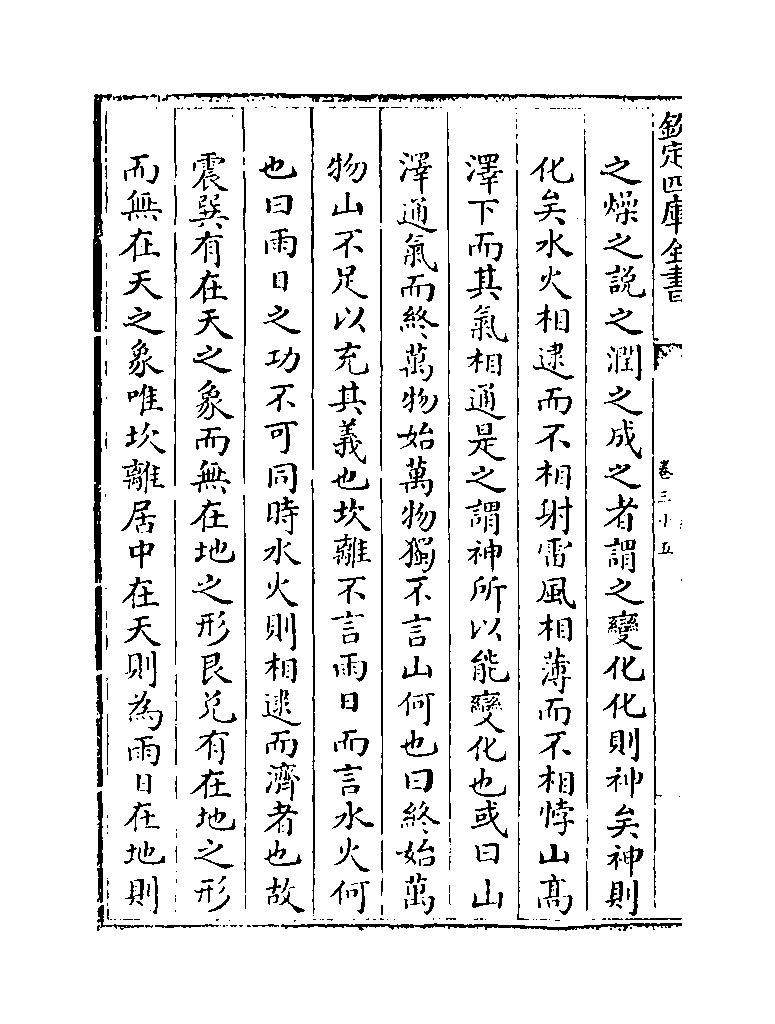 欽定四庫全書
卷三十五
之燥之説之潤之成之者謂之變化化則神矣神則
化矣水火相逮而不相射雷風相薄而不相悖山髙
澤下而其氣相通是之謂神所以能變化也或曰山
澤通氣而終萬物始萬物獨不言山何也曰終始萬
物山不足以充其義也坎離不言雨日而言水火何
也曰雨日之功不可同時水火則相逮而濟者也故
震巽有在天之象而無在地之形艮兑有在地之形
而無在天之象唯坎離居中在天則為雨日在地則